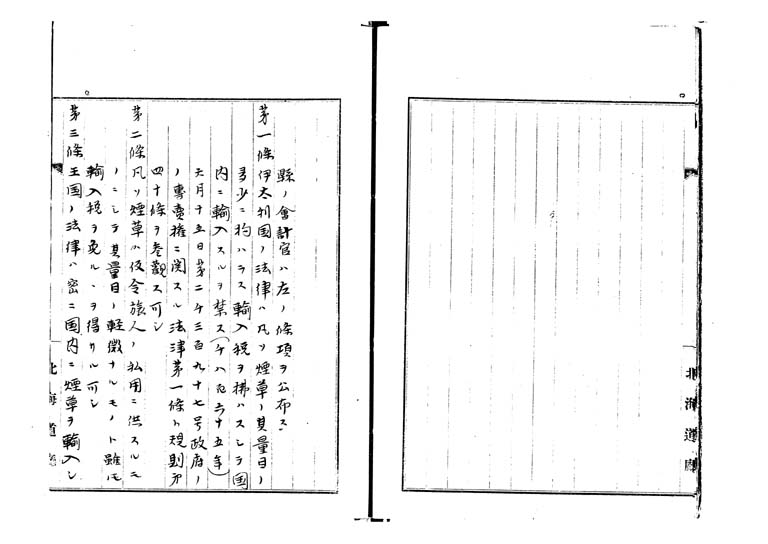 北海道廳
縣ノ會計官ハ左ノ條項ヲ公布ス
第一條伊太利国ノ法律ハ凡ソ煙草ノ其量目ノ
多少ニ拘ハラス輸入税ヲ拂ハスシテ国
内ニ輸入スルヲ禁ス(千八百六十五年
六月十五日第二千三百九十七号政府ノ
ノ專賣権ニ関スル法律第一條ト規則第
四十條ヲ参觀ス可シ
第二條凡ソ煙草ハ仮令旅人ノ私用ニ供スルモ
ノニシテ其量目ノ軽微ナルモノト雖モ
輸入税ヲ免ルヽヲ得サル可シ
第三條王国ノ法律ハ密ニ国内ニ煙草ヲ輸入シ
北海道廳